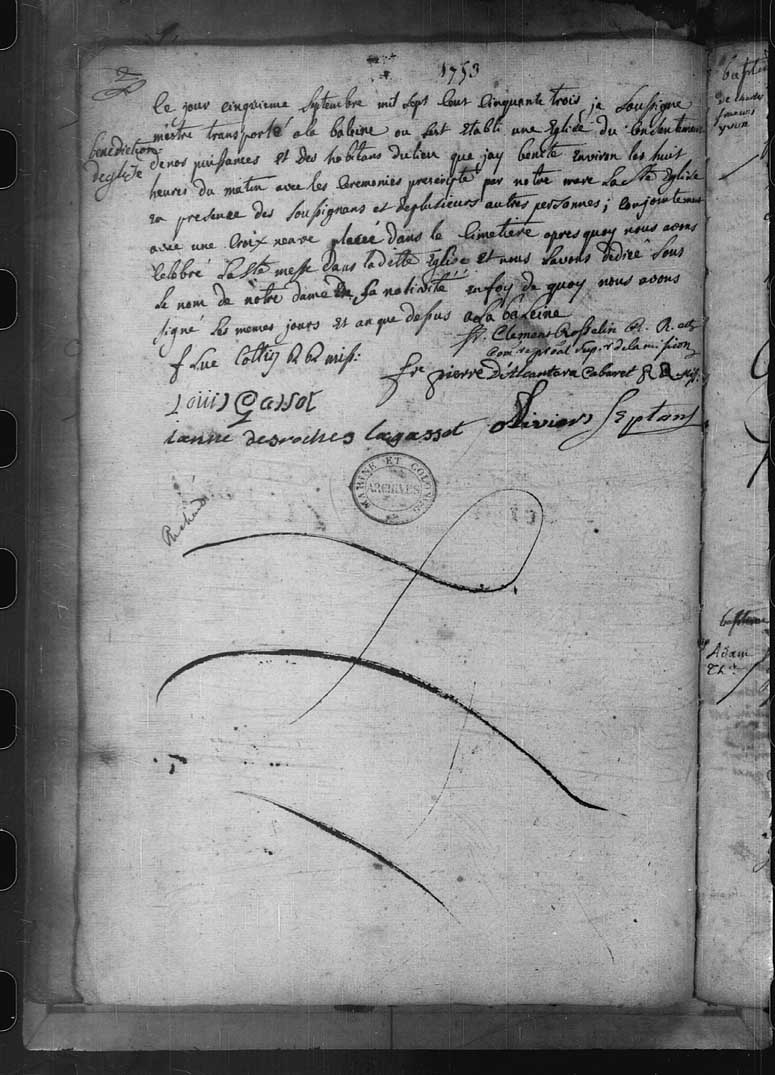 2
1753
benediction
deglise
le jour cinquieme septembre mil sept cent cinquante trois je soussigné
mestre transporté a la baleine ou sest Etabli une Eglise du Consentement
denos puissances et des habitans du lieu que jay benite Environ les huit
heures du matin avec les Ceremonies prescripte par notre mere La Ste Eglise
en presence des soussignans et deplusieurs autres personnes; conjointement
avec une Croix neuve placée dans le Cimetiere apres quoy nous avons
Celebré La Ste messe Dans laditte Eglise et nous Lavons Dediré sous
le nom de nôtre dame De Sa nativité en foy de quoy nous avons
signé Les memes jours Et an que desus a la baleine
fr. Clement Rosselin R.
Com.re pro.al Sup.r de la mission
f Luc Cottin R R miss:
fre pierre D'Alcantara Cabaret R R
Louis Gassot
ianne desroches lagassot
Olivier Septans
MARINE ET COLONIES
ARCHIVES
baptême
francois
yvon
baptême
Adam